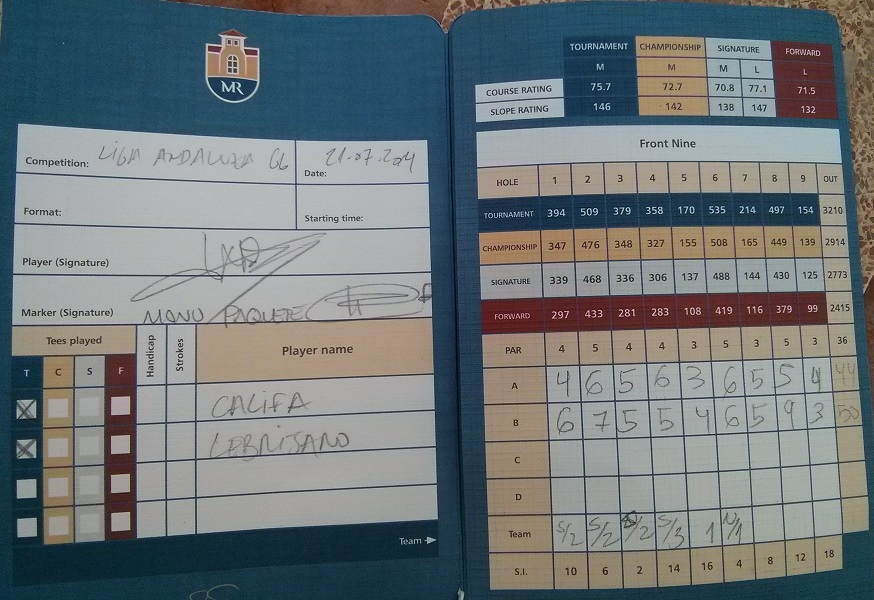 MR
Competition: LIGA ANDALUZA
Date: 21.07.2014
Format:
Starting time:
Player (Signature)
Marker (Signature) MANU PAQUETE
Tees played
Handicap
Strokes
Player name
T C S F
X CALIFA
X LEBRIJANO
Team
TOURNAMENT CHAMPIONSHIP SIGNATURE FORWARD
M M M L L
COURSE RATING 75.7 72.7 70.8 77.1 71.5
SLOPE RATING 146 142 138 147 132
Front Nine
HOLE 1 2 3 4 5 6 7 8 9 OUT
TOURNAMENT 394 509 379 358 170 535 214 497 154 3210
CHAMPIONSHIP 347 476 348 327 155 508 165 449 139 2914
SIGNATURE 339 468 336 306 137 488 144 430 125 2773
FORWARD 297 433 281 283 108 419 116 379 99 2415
PAR 4 5 4 4 3 5 3 5 3 36
A 4 6 5 6 3 6 5 5 4 44
B 6 7 5 5 4 6 5 9 3 50
C
D
Team S/2 S/2 /2 S/3 1 N/1
S.I. 10 6 2 14 16 4 8 12 18